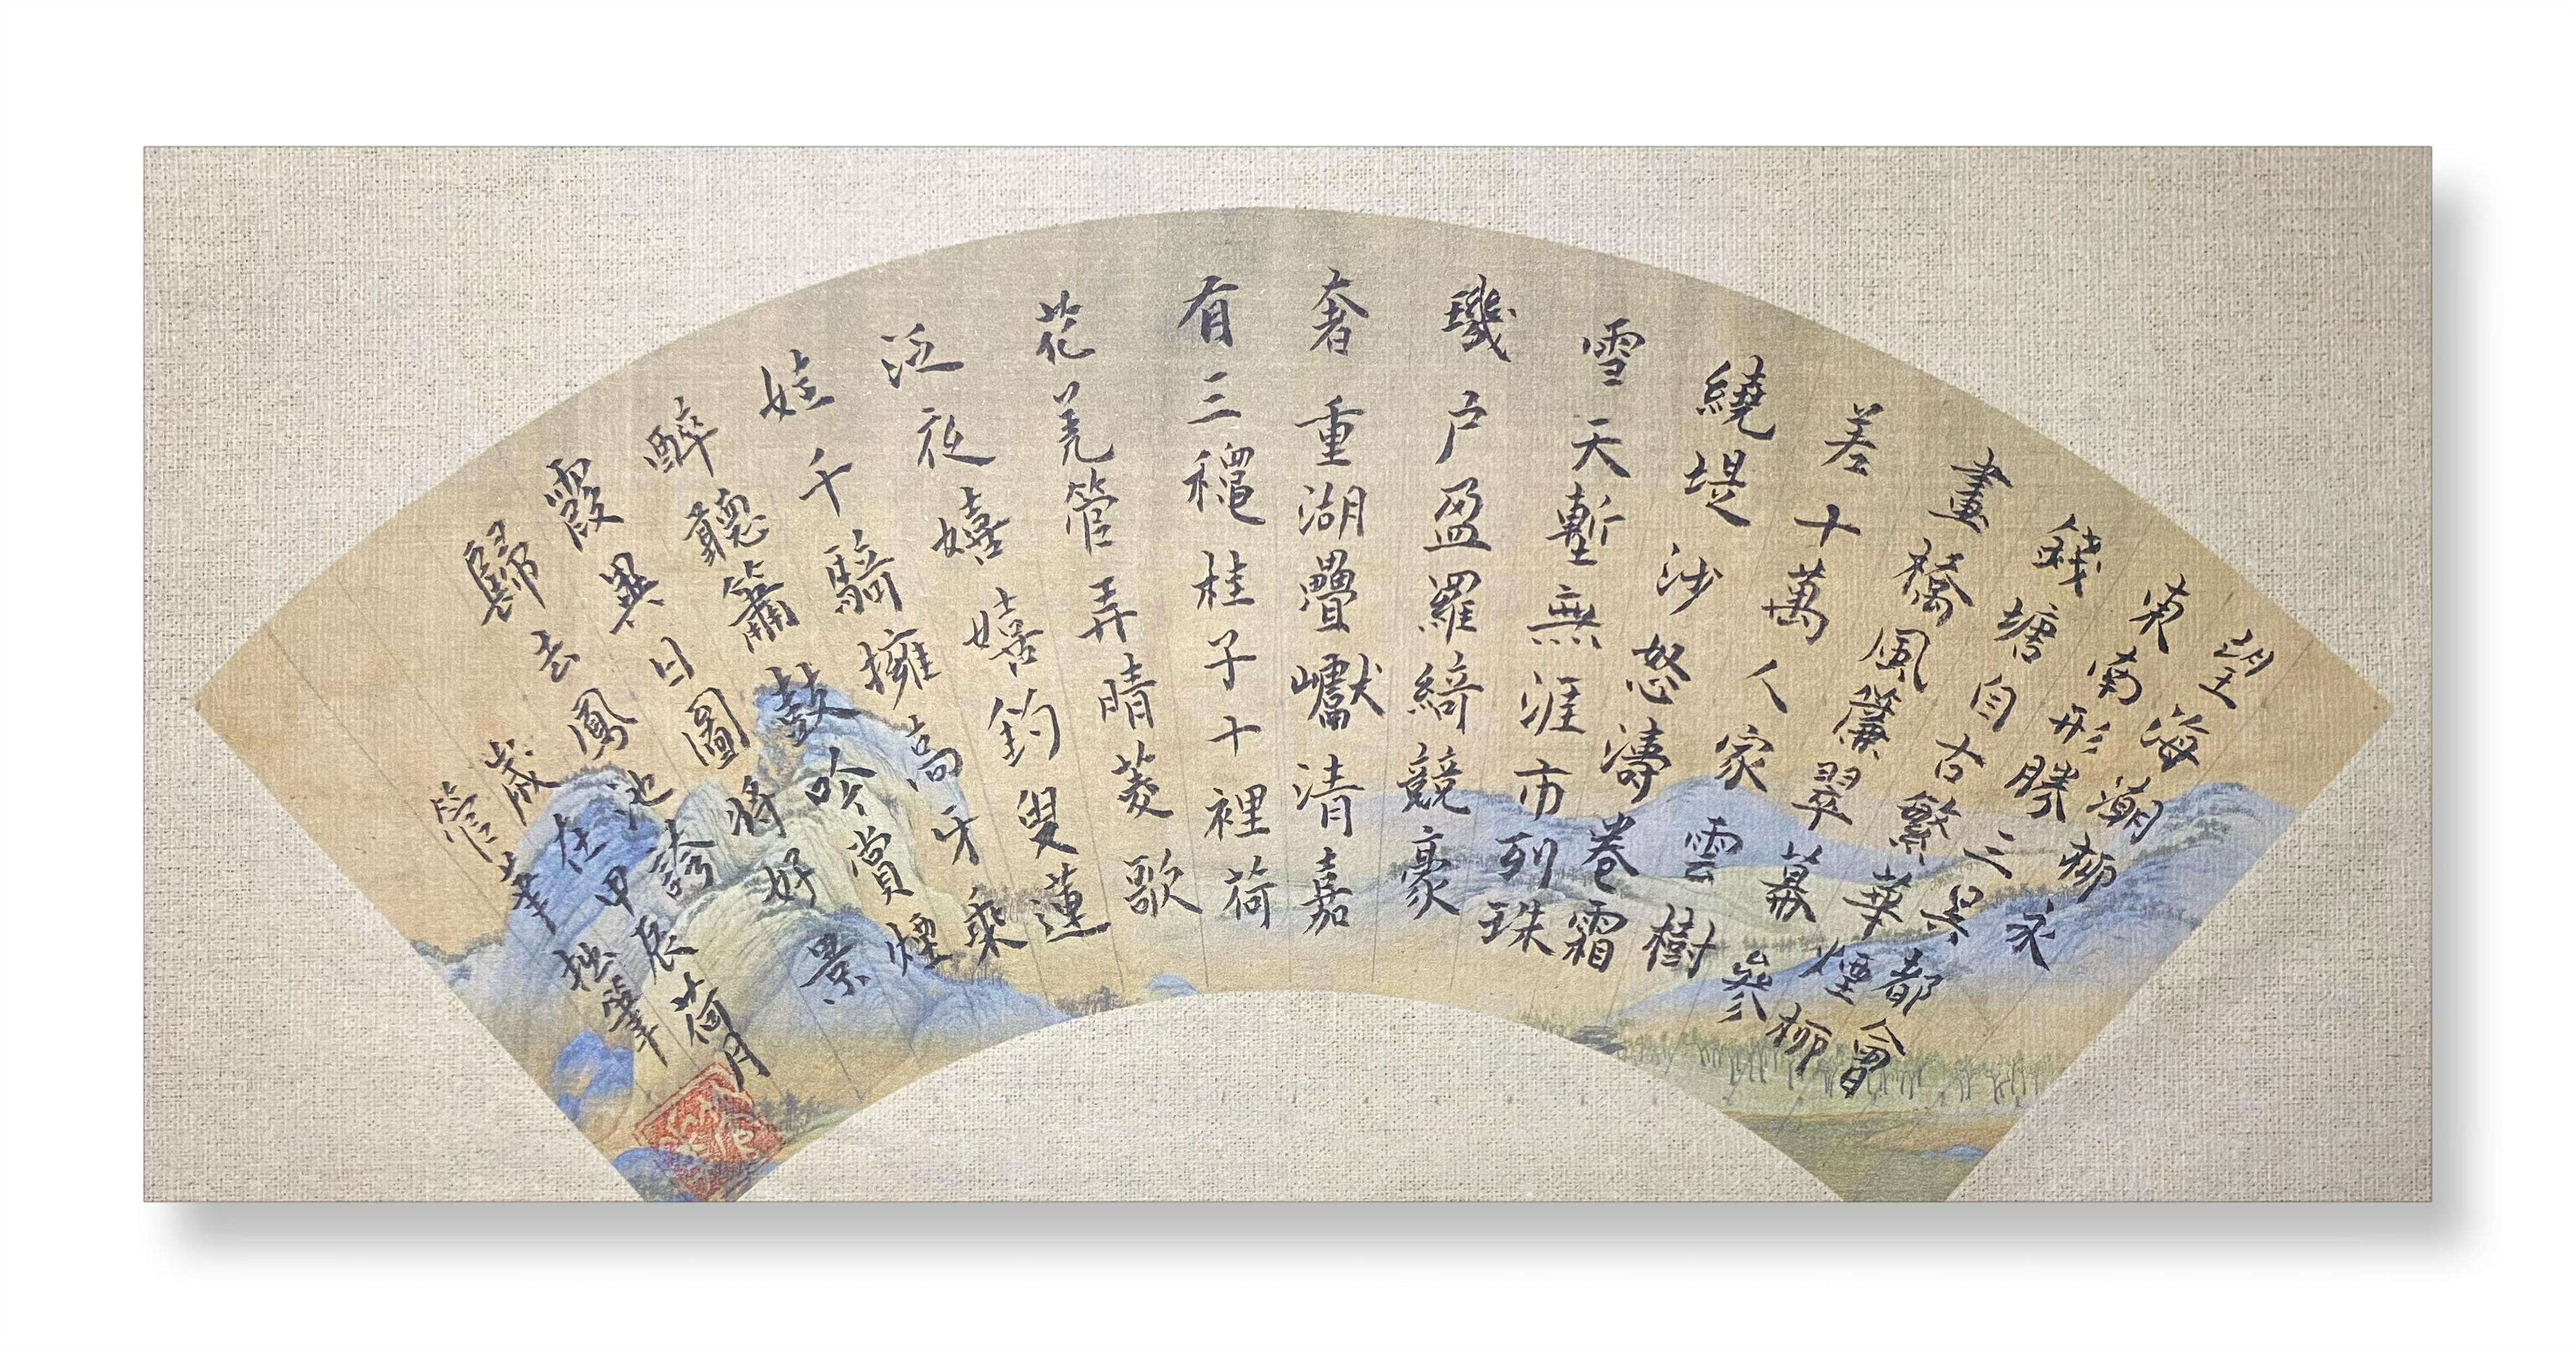 望海潮柳永
東南形勝三吳都會
錢塘自古繁華煙柳
畫橋風簾翠幕參
差十萬人家雲樹
繞堤沙怒濤卷霜
雪天塹無涯市列珠
璣戶盈羅綺競豪
奢重湖疊巘清嘉
有三穐桂子十裡荷
花羌管弄晴菱歌
泛夜嬉嬉釣叟蓮
娃千騎擁高牙乘
醉聽簫鼓吟賞煙
霞異日圖將好景
歸去鳳池誇
歲在甲辰荷月
管華拙筆